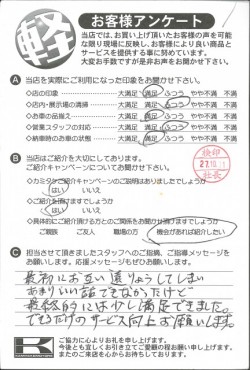 軽
お客様アンケート
当店では、お買い上げ頂いたお客様の声を可能
な限り現場に反映し、お客様により良い商品と
サービスを提供する事に努めています。
大変お手数ですが是非お声をお聞かせ下さい。
A 当店を実際にご利用になった印象をお聞かせ下さい。
◇店の印象 大満足 満足 ふつう やや不満 不満
◇店内・展示場の清掃 大満足 満足 ふつう やや不満 不満
◇お車の品揃え 大満足 満足 ふつう やや不満 不満
◇営業スタッフの対応 大満足 満足 ふつう やや不満 不満
◇納車時のお車の状態 大満足 満足 ふつう やや不満 不満
B 当店はご紹介を大切にしてあります。
ご紹介キャンペーンについてお聞かせ下さい。
検印
27.10.
社長
◇カミタケご紹介キャンペーンのご説明はありましたでしょうか
はい いいえ
◇ご紹介を頂けますでしょうか
はい いいえ
◇具体的にご紹介頂ける方とのご関係をお聞かせ頂けますでしょうか
ご親族 ご友人 職場の方 機会があれば紹介したい
C 担当させて頂きましたスタッフへのご指摘、ご指導メッセージを
お願いします。応援メッセージもぜひお願いします。
最初にお互い遠りょうしてしまい
あまりいい話できなかたけど
最終的には少し満足できました。
できるだけのサービス向上お願いします。
K
ご協力に心よりお礼を申し上げます。
今後とも宜しくお引き立てご愛顧の程お願い致します。
またのご来店を心からお待ちしております。